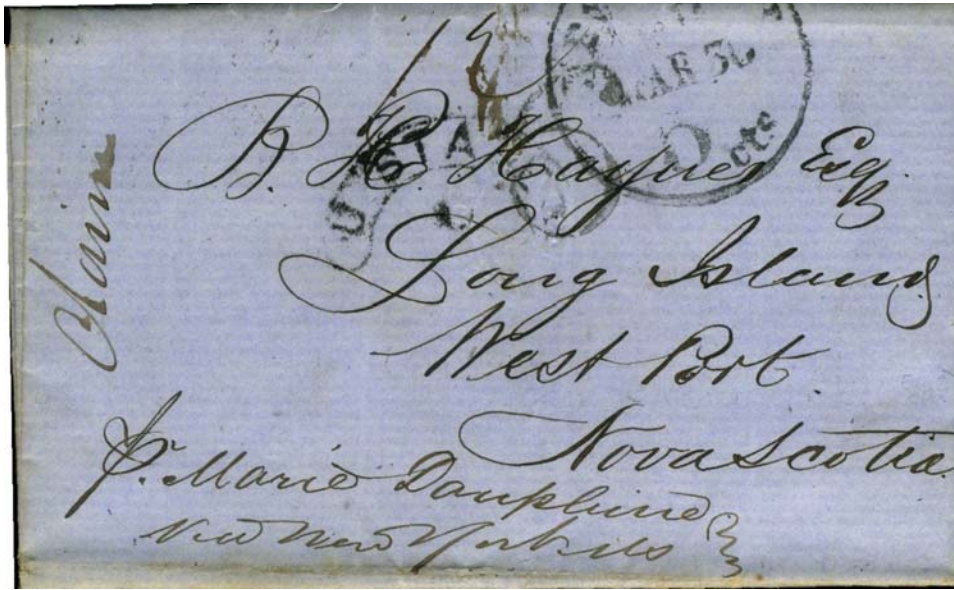 MAR 30
10 cts
USTA
B. H. Haynes Esq
Long Island
West Port
Nova Scotia
pr. Marie Dauphine
via New York US